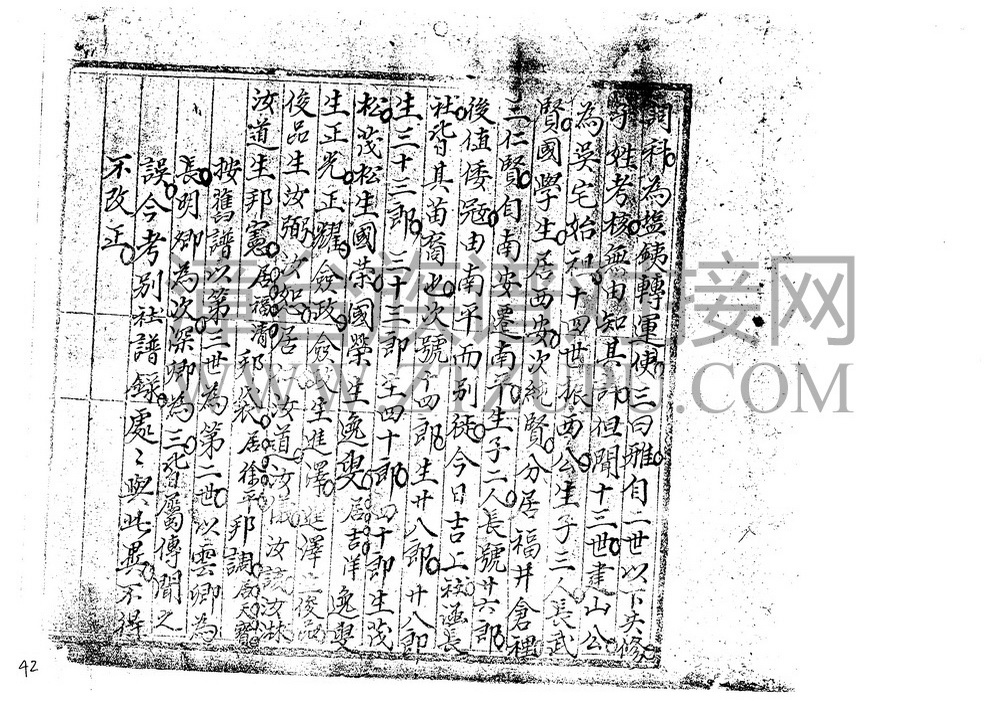 同科為塩鉄轉運使三曰雅自二世以下失修
字姓考核無由知其詳但聞十三世建山公
為吳宅始祖十四世振西公生子三人長武
賢國學生居西安次統賢分居福井倉裡
三仁賢自南安遷南平生子二人長號廿六郎
後值倭冦由南平而別徙今日吉上社涵長
社皆其苗裔也次號十四郎生廿八郎廿八郎
生三十三郎三十三郎生四十郎四十郎生茂
松茂松生國榮國榮生逸叟居吉洋逸叟
生正光正耀僉政僉政生進澤進澤生俊品
俊品生汝弼居汝道汝儀汝
汝道生邦憲居福清邦居徐平邦調居天寶
按舊譜以第三世為第二世以雲卿為
長明卿為次深卿為三皆屬傳聞之
誤今考別社譜錄處々與此異不得
不改正
漳台族谱对接网
WWW.ZTZUPU.COM
42